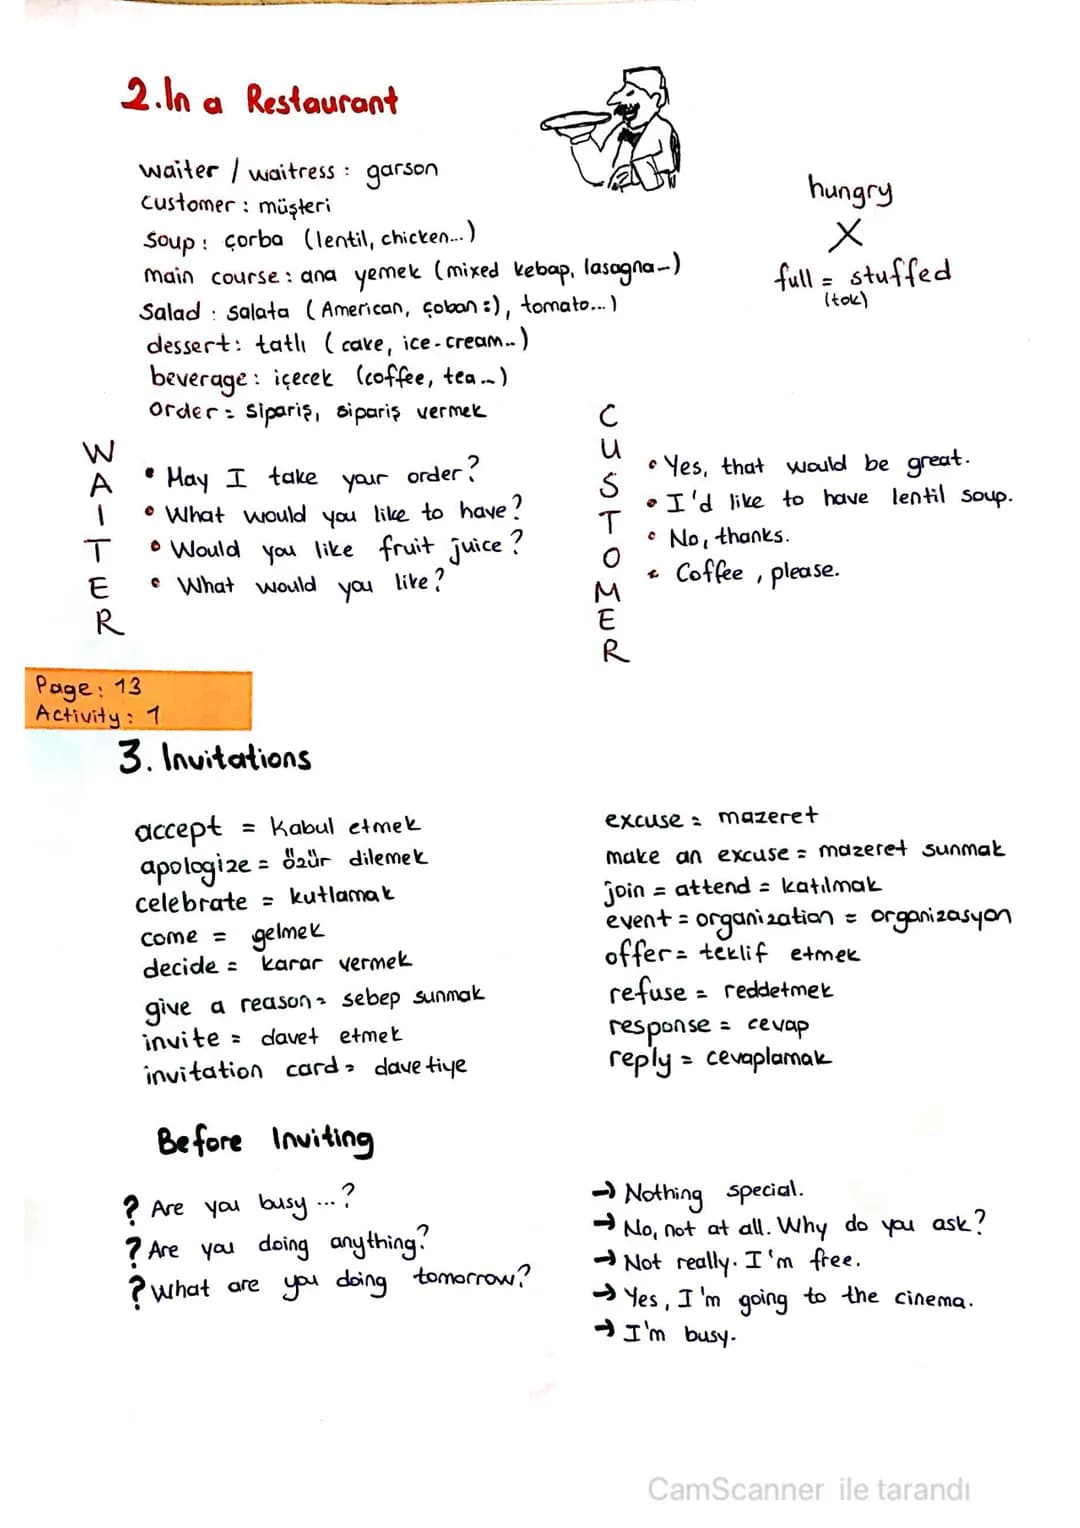 2. In a Restaurant
waiter / waitress : garson
customer : müşteri
Soup : çorba (lentil, chicken...)
main course : ana yemek (mixed kebap, lasagna...)
Salad : salata (American, çoban :), tomato...)
dessert : tatlı (cake, ice-cream...)
beverage : içecek (coffee, tea...)
order = sipariş, sipariş vermek
hungry
X
full = stuffed
(tok)
WAITER
• May I take your order?
• What would you like to have?
• Would you like fruit juice?
• What would you like?
CUSTOMER
• Yes, that would be great.
• I'd like to have lentil soup.
• No, thanks.
• Coffee, please.
Page: 13
Activity: 1
3. Invitations
accept = Kabul etmek
apologize = özür dilemek
celebrate = kutlamak
come = gelmek
decide = karar vermek
give a reason = sebep sunmak
invite = davet etmek
invitation card = davetiye
excuse = mazeret
make an excuse = mazeret sunmak
join = attend = katılmak
event = organization = organizasyon
offer = teklif etmek
refuse = reddetmek
response = cevap
reply = cevaplamak
Before Inviting
? Are you busy ...?
? Are you doing anything?
? What are you doing tomorrow?
→ Nothing special.
→ No, not at all. Why do you ask?
→ Not really. I'm free.
→ Yes, I'm going to the cinema.
→ I'm busy.
CamScanner ile tarandı